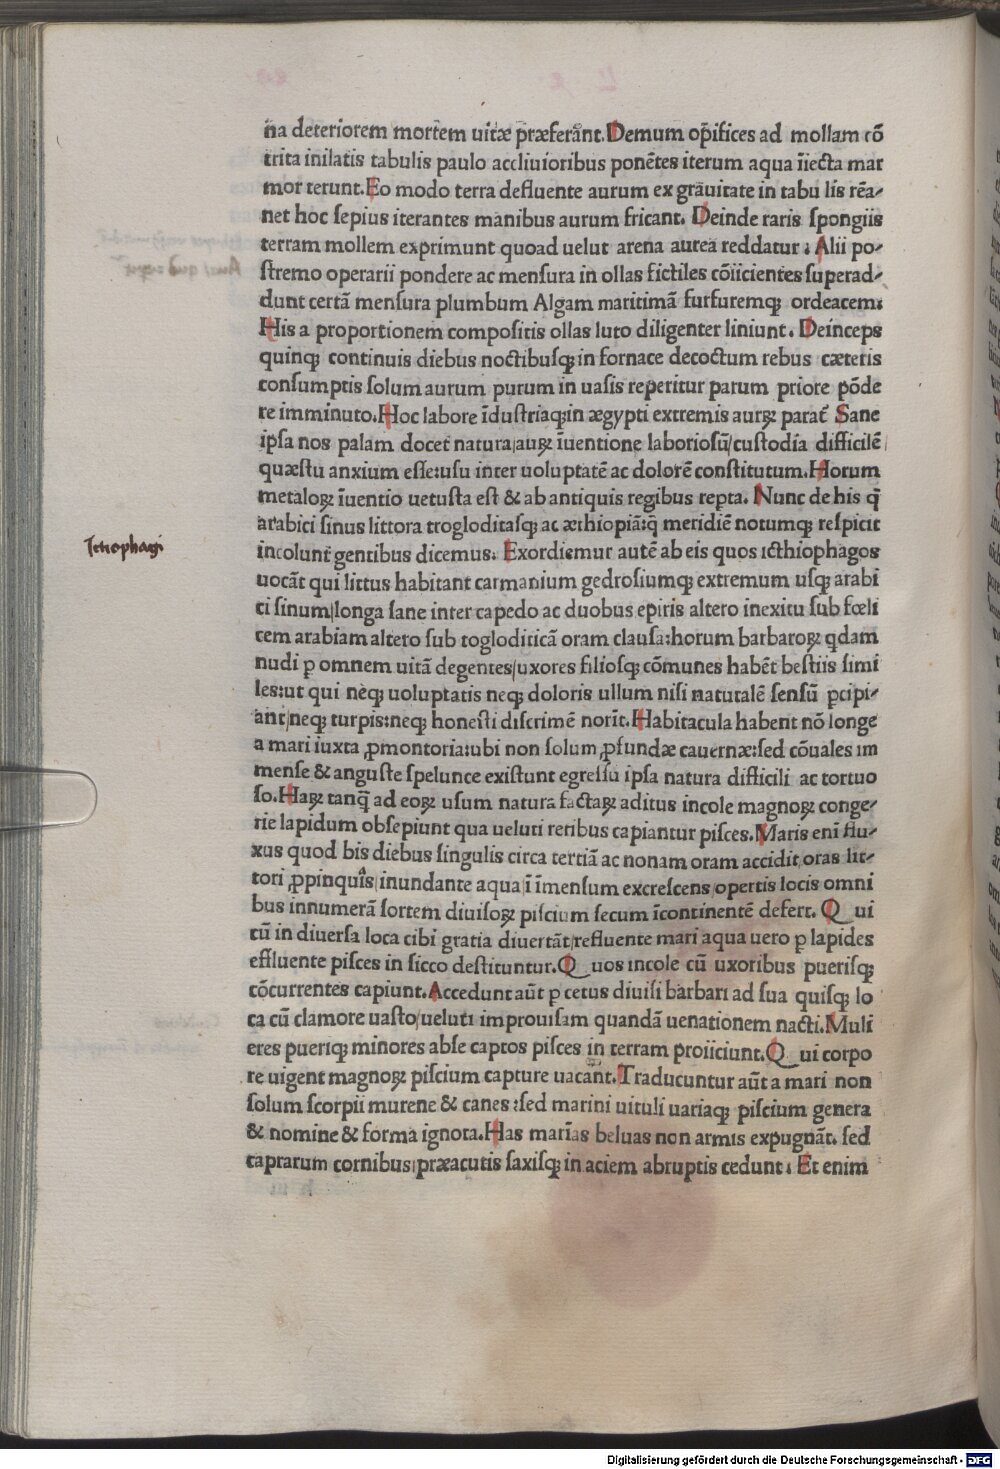 na deteriorem mortem uitæ præferãnt. Demum op̃ifices ad mollam cõ
trita inilatis tabulis paulo accliuioribus ponẽtes iterum aqua ĩiecta mar
mor terunt. Eo modo terra defluente aurum ex grãuitate in tabu lis rẽa⸗
net hoc ſepius iterantes manibus aurum fricant. Deinde raris ſpongiis
terram mollem exprimunt quoad uelut arena aurea reddatur: Alii po⸗
ſtremo operarii pondere ac menſura in ollas fictiles cõiicientes ſuperad⸗
dunt certã menſura plumbum Algam maritimã furfuremqꝫ ordeacem:
His a proportionem compoſitis ollas luto diligenter liniunt. Deinceps
quinqꝫ continuis diebus noctibuſqꝫ in fornace decoctum rebus cæteris
conſumptis ſolum aurum purum in uaſis reperitur parum priore põde
re imminuto. Hoc labore ĩduſtriaqꝫ in ægypti extremis aurꝝ parat̃ Sane
ipſa nos palam docet natura/auꝝ ĩuentione laborioſũ/cuſtodia difficilẽ/
quæſtu anxium eſſe:uſu inter uoluptatẽ ac dolorẽ conſtitutum. Horum
metaloꝝ ĩuentio uetuſta eſt & ab antiquis regibus reꝑta. Nunc de his q̃
arabici ſinus littora trogloditaſqꝫ ac æthiopiã:q̃ meridiẽ notumqꝫ reſpicit
Ictiophagi
incolunt gentibus dicemus. Exordiemur autẽ ab eis quos icthiophagos
uocãt qui littus habitant carmanium gedroſiumqꝫ extremum uſqꝫ arabi
ci ſinum/longa ſane inter capedo ac duobus epiris altero inexitu ſub fœli
cem arabiam altero ſub togloditicã oram clauſa:horum barbaroꝝ qdam
nudi ꝑ omnem uitã degentes/uxores filioſqꝫ cõmunes habẽt beſtiis ſimi
les:ut qui neqꝫ uoluptatis neqꝫ doloris ullum niſi naturalẽ ſenſũ ꝑcipi⸗
ant/neqꝫ turpis:neqꝫ honeſti diſcrimẽ norĩt. Habitacula habent nõ longe
a mari iuxta ꝓmontoria:ubi non ſolum ꝓfundæ cauernæ:ſed cõuales im
menſe & anguſte ſpelunce exiſtunt egreſſu ipſa natura difficili ac tortuo
ſo. Haꝝ tanq̃ ad eoꝝ uſum natura factaꝝ aditus incole magnoꝝ conge⸗
rie lapidum obſepiunt qua ueluti retibus capiantur piſces. Maris enĩ flu⸗
xus quod bis diebus ſingulis circa tertiã ac nonam oram accidit/oras lit⸗
tori ꝓpinquas/inundante aqua/ĩ ĩmenſum excreſcens/opertis locis omni
bus innumerã ſortem diuiſoꝝ piſcium ſecum ĩcontinentẽ defert. Q ui
cũ in diuerſa loca cibi gratia diuertãt/refluente mari aqua uero ꝑ lapides
effluente piſces in ſicco deſtituntur. Q uos incole cũ uxoribus pueriſqꝫ
cõcurrentes capiunt. Accedunt aũt ꝑ cetus diuiſi barbari ad ſua quiſqꝫ lo
ca cũ clamore uaſto/ueluti improuiſam quandã uenationem nacti. Muli
eres pueriqꝫ minores abſe captos piſces in terram proiiciunt. Q ui corpo
re uigent magnoꝝ piſcium capture uacant. Traducuntur aũt a mari non
ſolum ſcorpii murene & canes:ſed marini uituli uariaqꝫ piſcium genera
& nomine & forma ignota. Has marĩas beluas non armis expugnãt. ſed
caprarum cornibus:præacutis ſaxiſqꝫ in aciem abruptis cedunt: Et enim
Digitalisierung gefördert durch die Deutsche Forschungsgemeinschaft - DFG